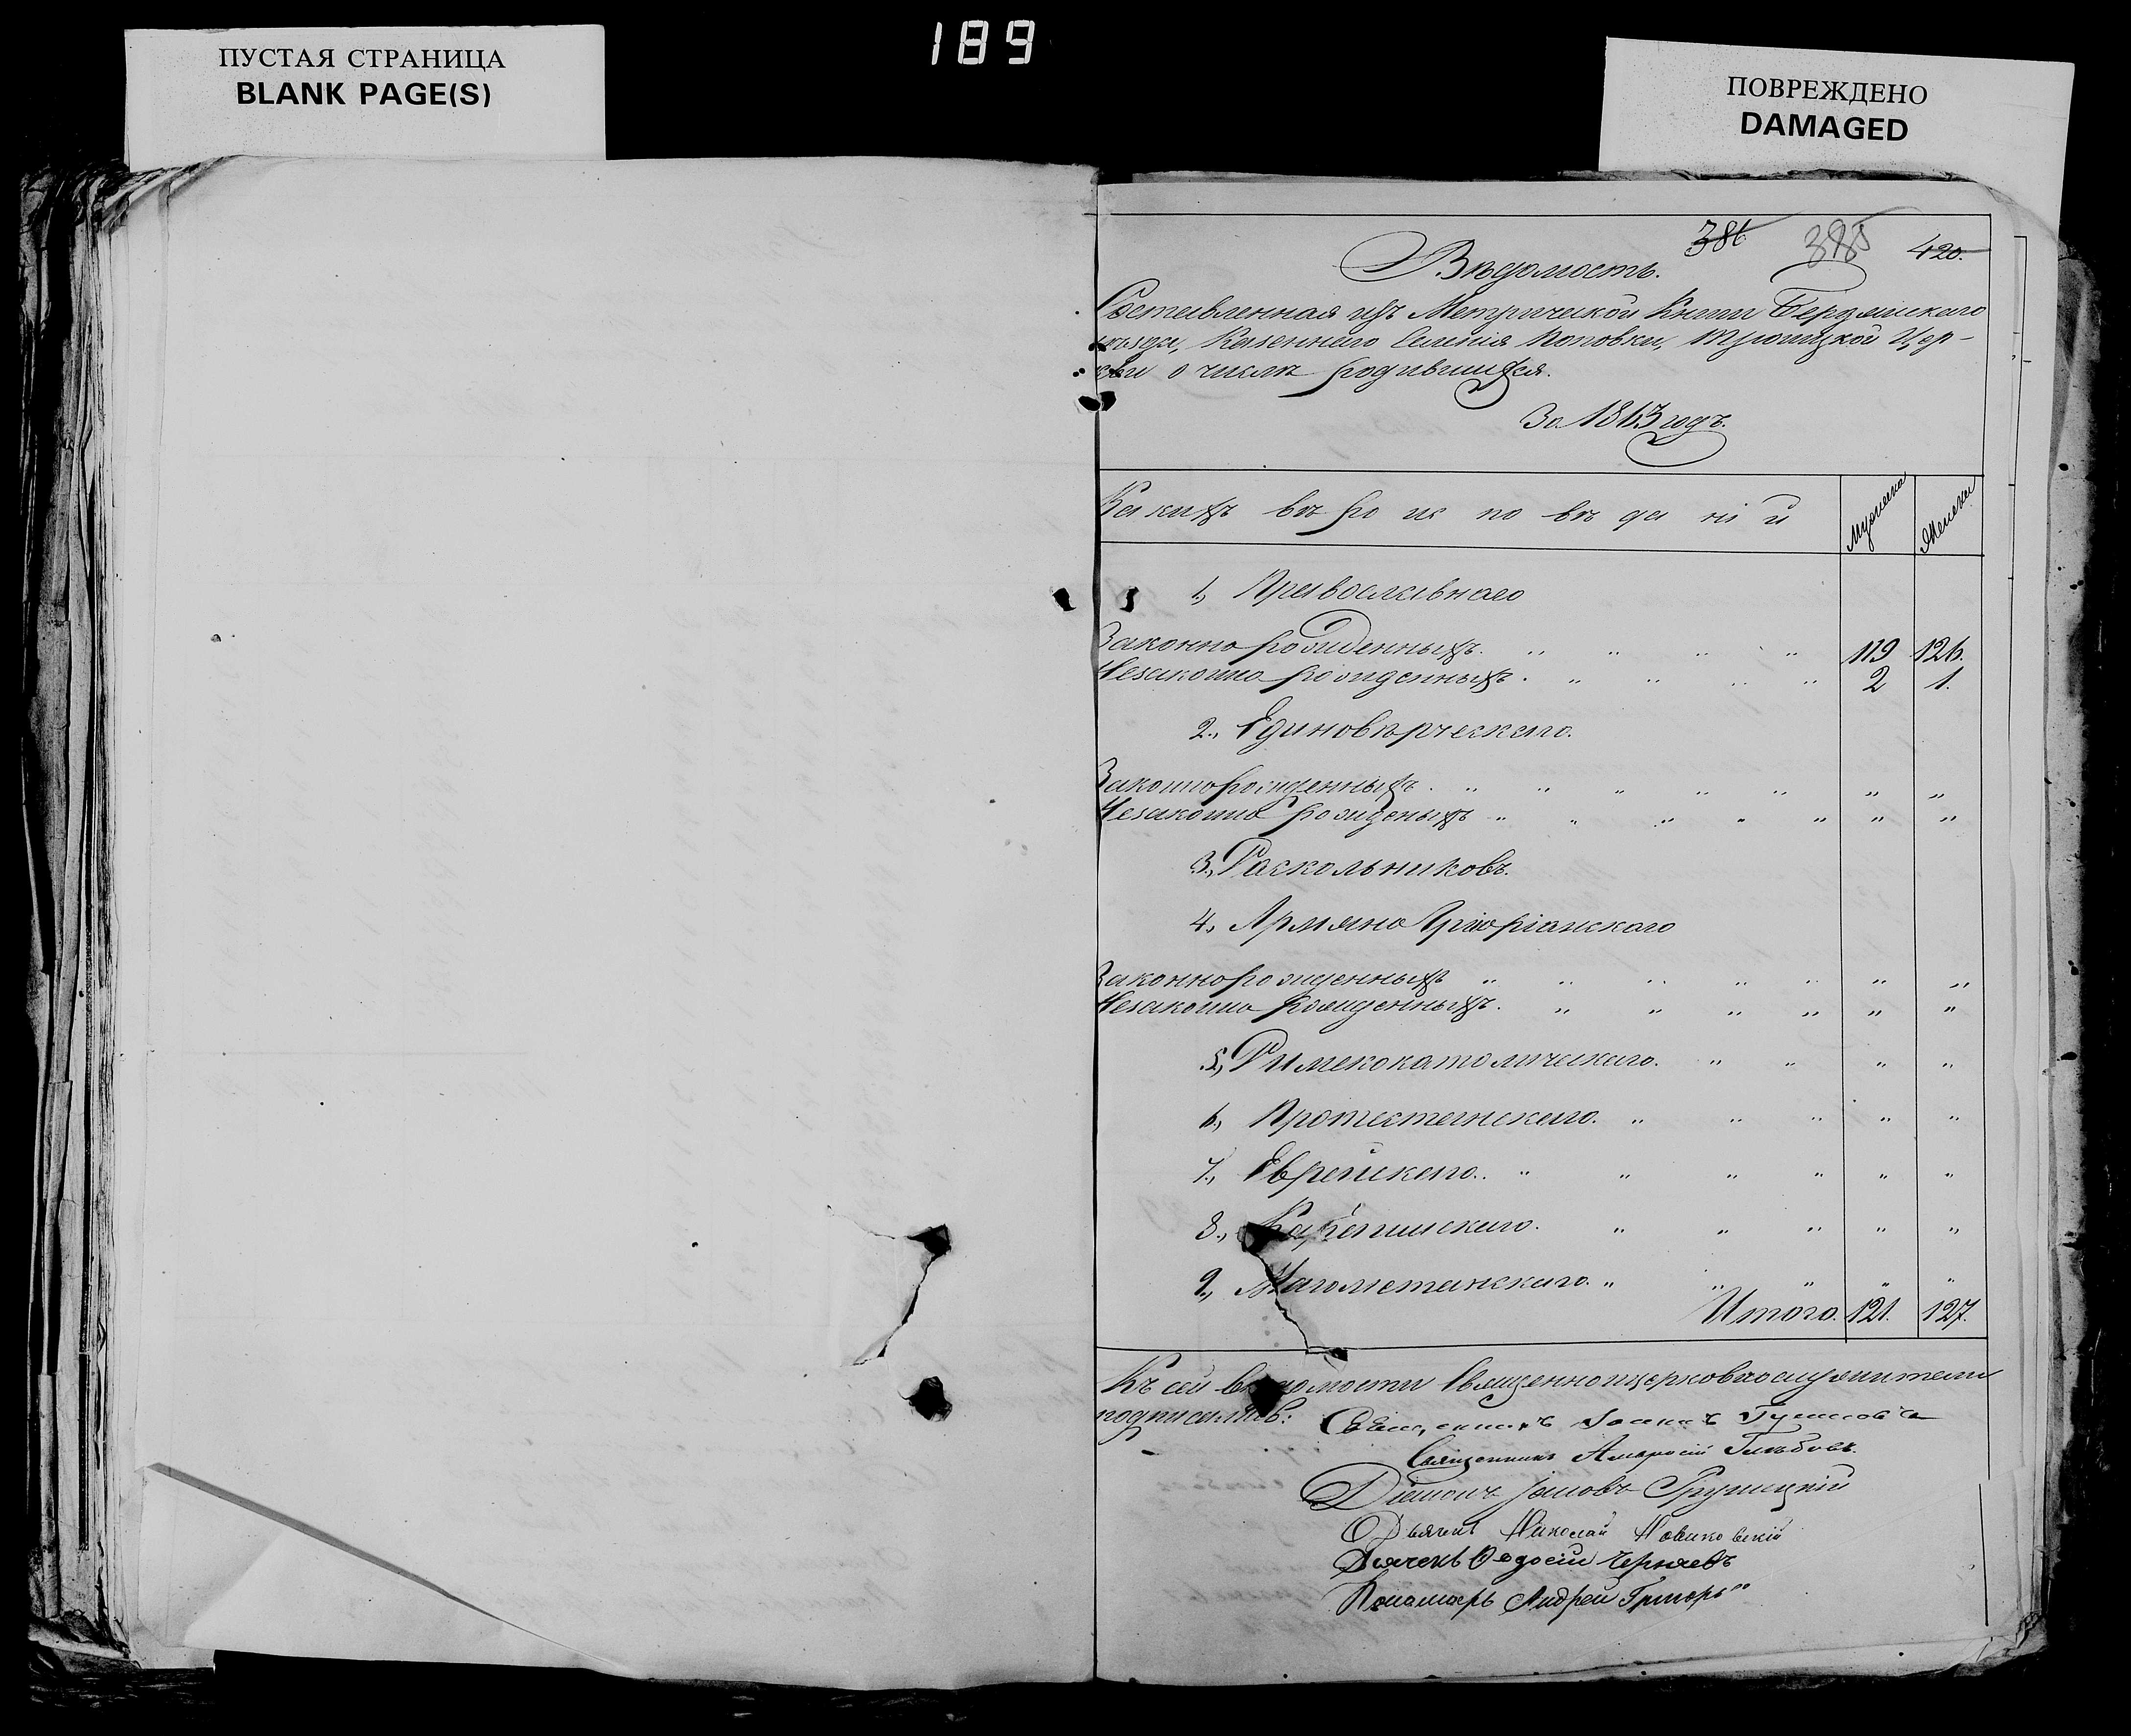 ПУСТАЯ СТРАНИЦА
BLANK PAGE(S)
189
ПОВРЕЖДЕНО
DAMAGED
386 385 420.
Вѣдомость.
Составленная изъ Метрической Книги Бердянскаго
уѣзда, Казеннаго Селенія Поповки, Троицкой Цер-
кви о числѣ родившихся.
За 1863 годъ.
Какихъ вѣроисповѣданій
Мужеска
Женска
1., Православнаго
Законно рожденныхъ. „ „ „ „ 119 126.
Незаконно рожденныхъ. „ „ „ „ 2 1.
2., Единовѣрческаго.
Законнорожденныхъ. „ „ „ „ „ „ „
Незаконно рожденыхъ „ „ „ „ „ „ „
3., Раскольниковъ.
4., Армяно Григоріанскаго
Законнорожденныхъ „ „ „ „ „ „ „
Незаконно рожденныхъ. „ „ „ „ „ „
5., Римскокатолическаго. „ „ „ „
6., Протестанскаго. „ „ „ „ „
7., Еврейскаго. „ „ „ „ „ „
8., „ „ „ „ „
9., Магометанскаго. „ „ „ „ „
Итого. 121. 127.
Къ сей вѣдомости Священноцерковнослужители
подписались:
Священникъ Іоаннъ
Священникъ Амвросій Глѣбовъ.
Діаконъ Іаковъ Грушецкій
Дьячекъ Николай Новиковскій
Дьячекъ Ѳедосій Черняевъ
Пономарь Андрей